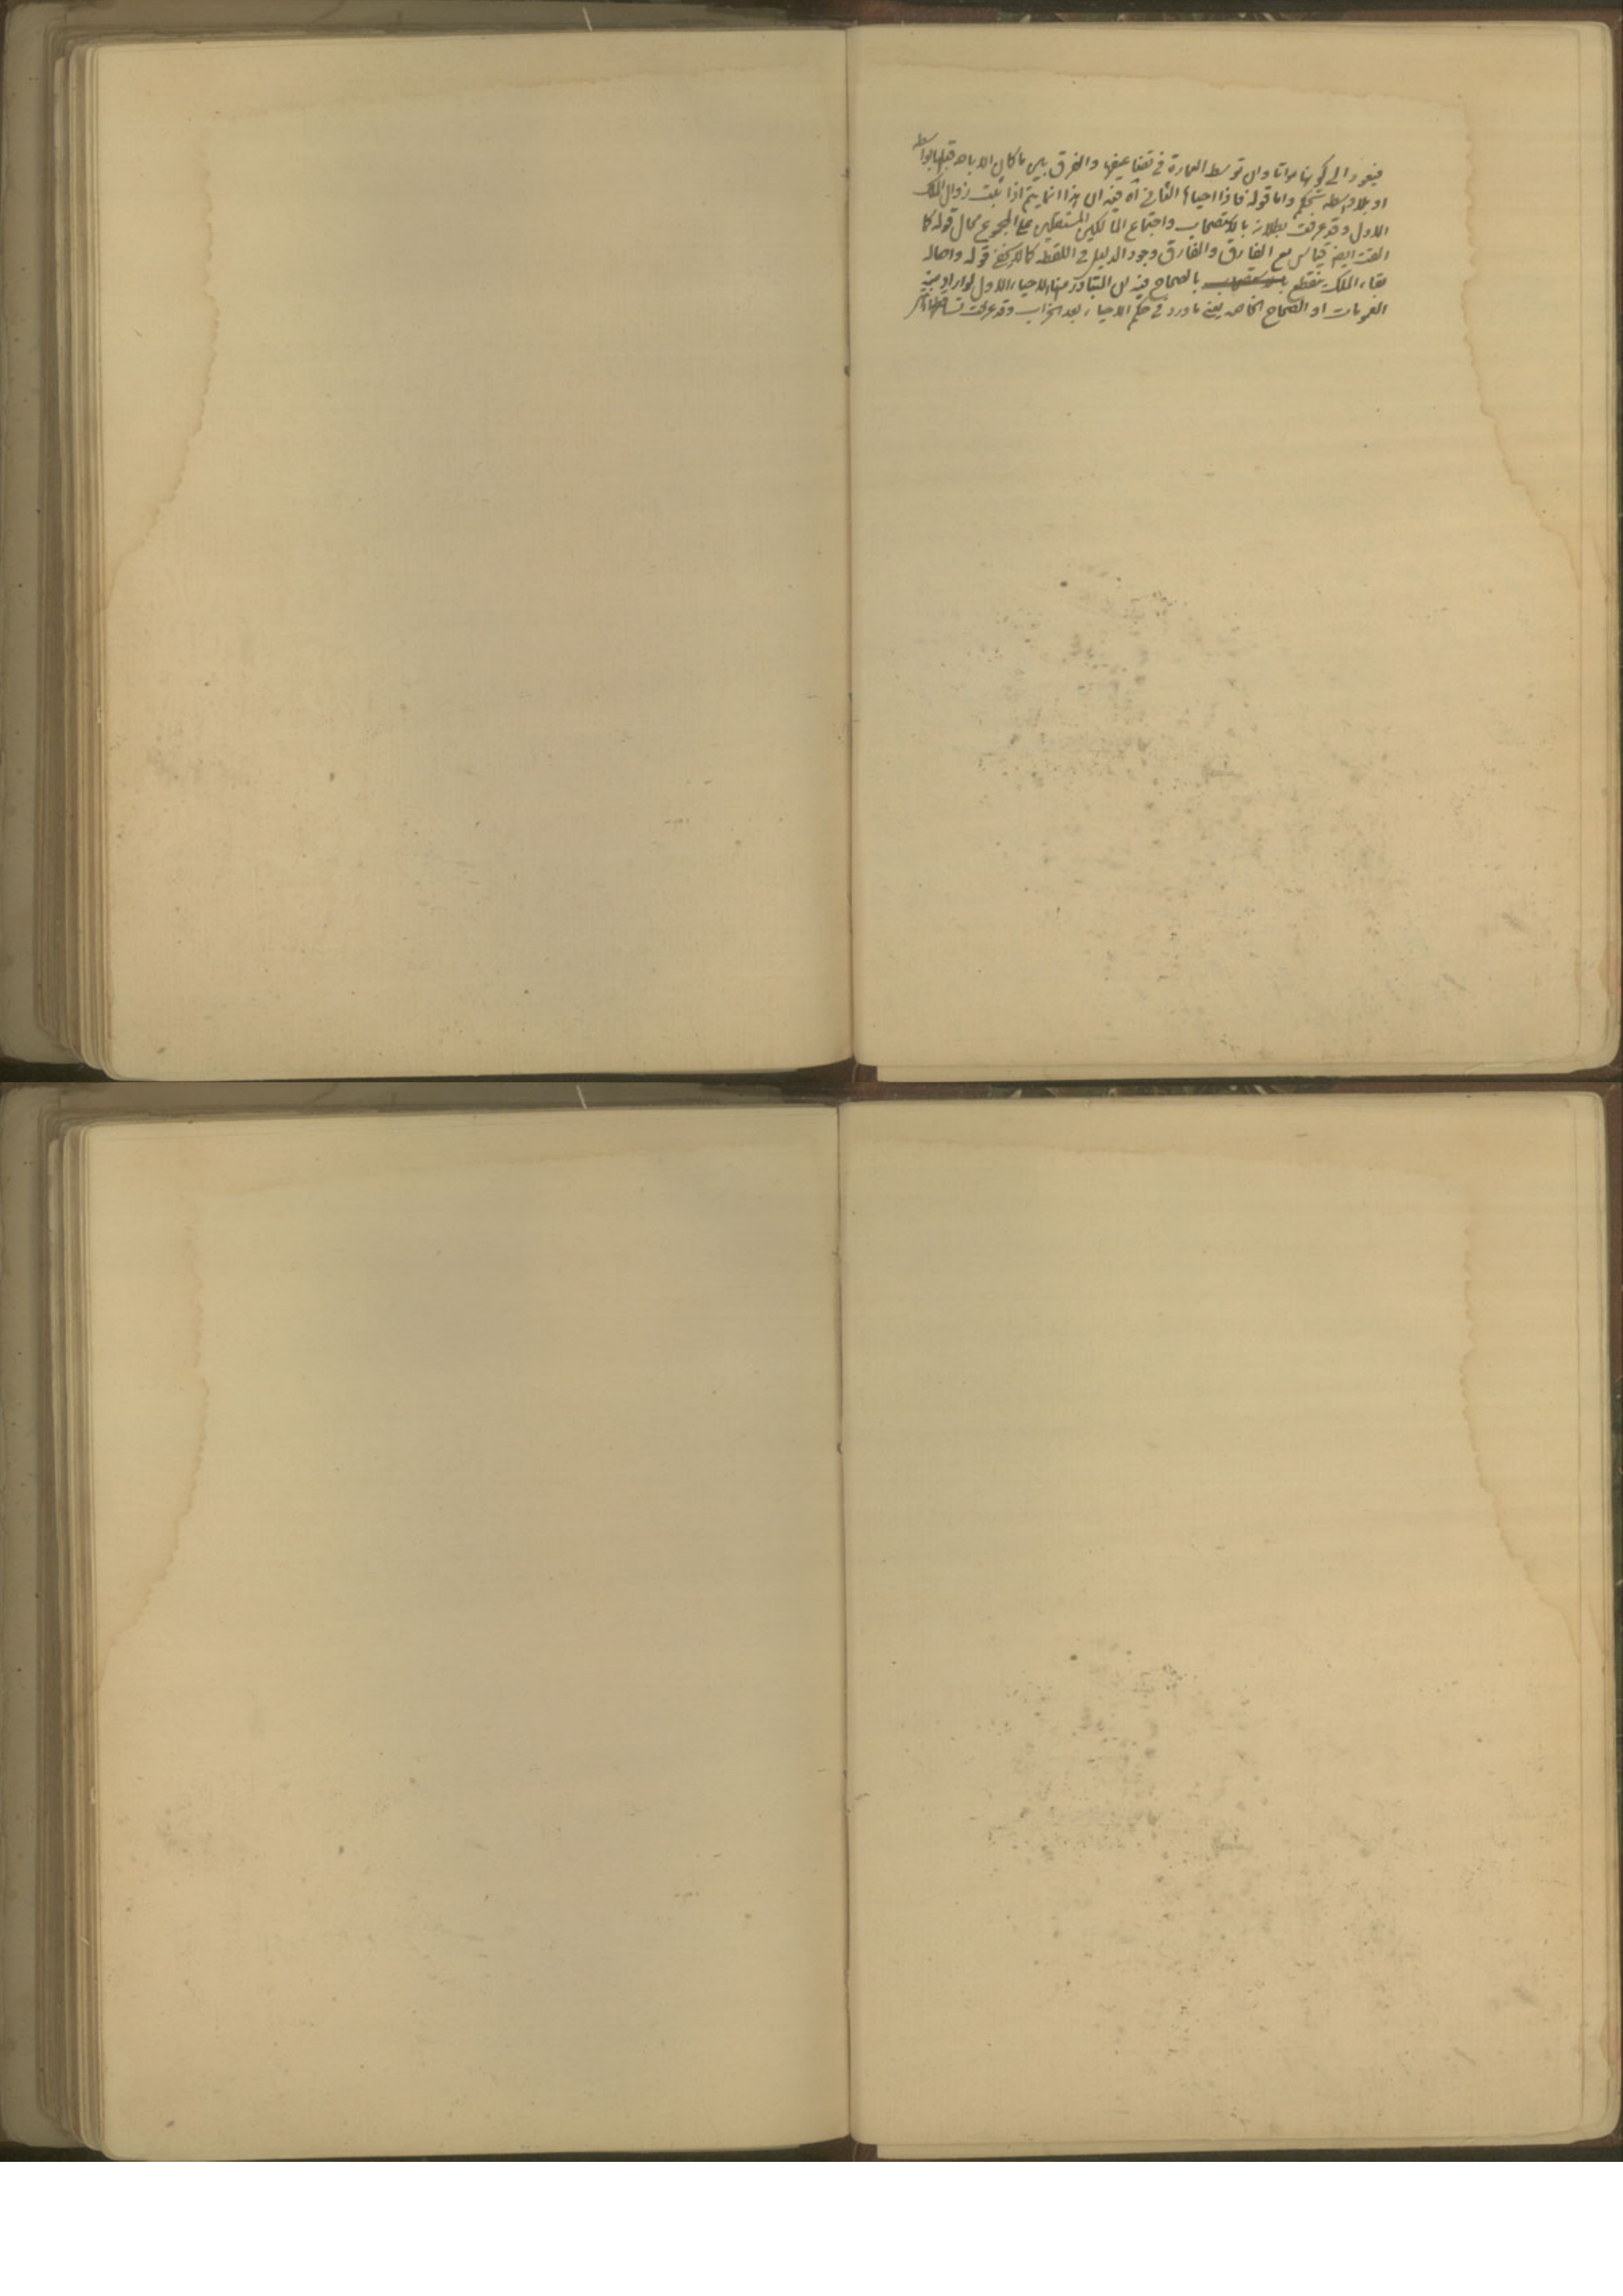 فيعود الى كونها مواتا وان توسط العمارة في تضاعيفها والفرق بين ما كان الاباحة قبلها بواسطه
او بلا واسطه تحكم واما قوله فاذا احياها الثاني آه ففيه ان هذا انما يتم اذا ثبت زوال الملك
الاول وقد عرفت بطلانه بالاستصحاب واجتماع المالكين المستقلين على المجموع محال قوله كما
التقت ايضا قياس مع الفارق والفارق وجود الدليل في اللقطه كالركني قوله واصاله
بقاء الملك ينقطع بالصحاح فيه ان المتبادر منها الاحياء الاول لو اراد منه
العمومات او الصحاح الخاصه يعني ما ورد في حكم الاحياء بعد الخراب وقد عرفت